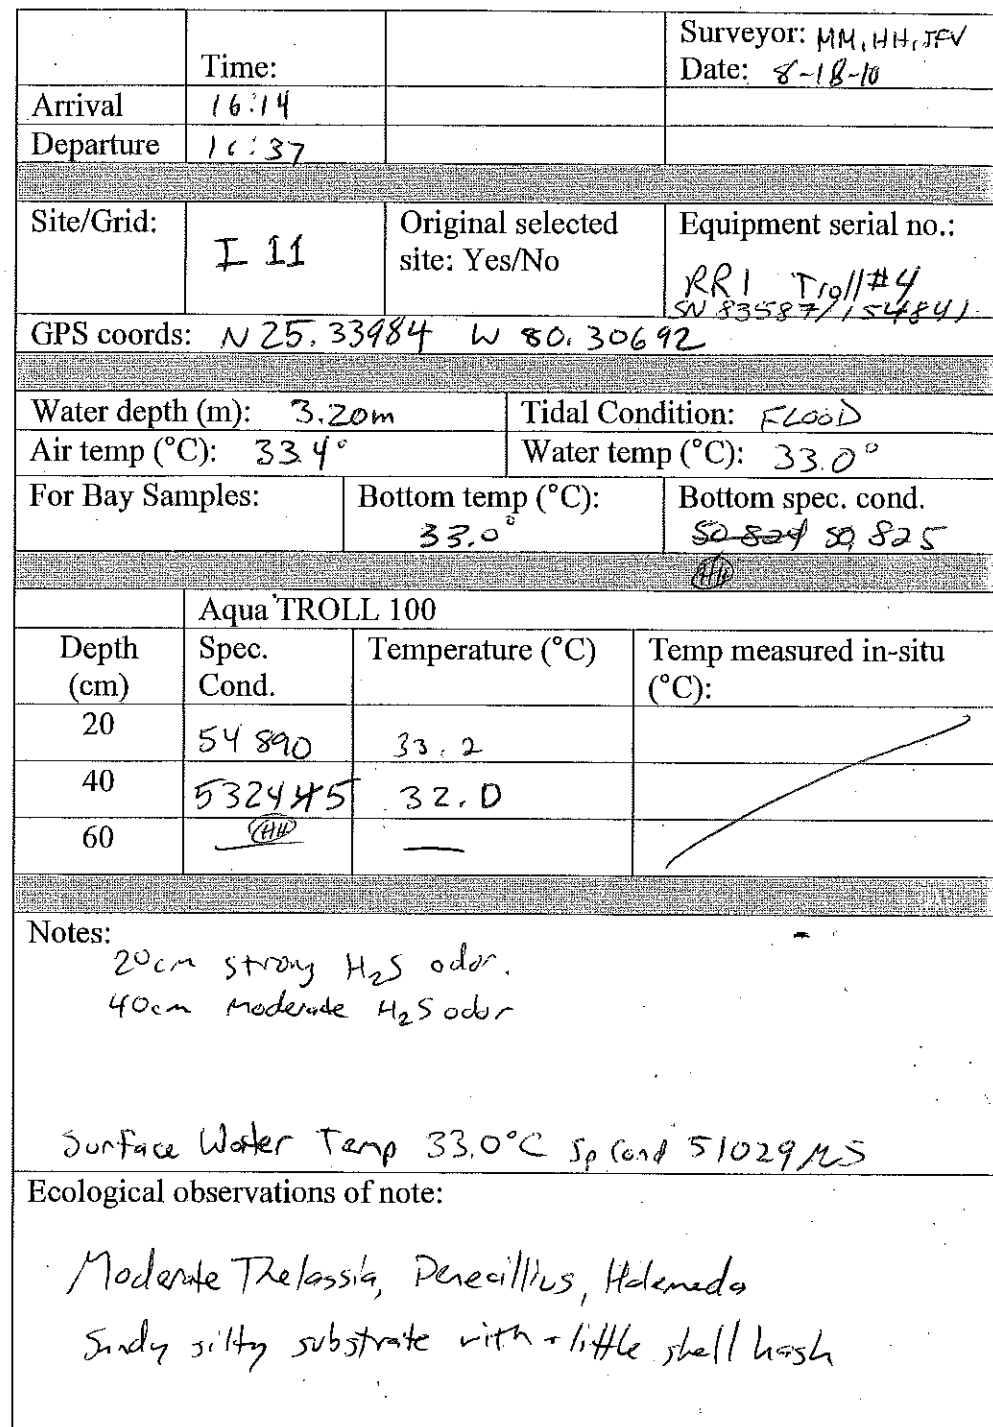 Surveyor: MM, HH, JFV
Time: Date: 8-18-10
Arrival 16:14
Departure 16:37
Site/Grid: I 11 Original selected site: Yes/No Equipment serial no.: RR1 Troll#4
SN 83587/154841
GPS coords: N 25.33984 W 80.30692
Water depth (m): 3.20m Tidal Condition: FLOOD
Air temp (°C): 33.4° Water temp (°C): 33.0°
For Bay Samples: Bottom temp (°C): 33.0° Bottom spec. cond. 50824 50,825
HH
Aqua TROLL 100
Depth (cm) Spec. Cond. Temperature (°C) Temp measured in-situ (°C):
20 54 890 33.2
40 532445 32.0
60 HH —
Notes:
20cm strong H2S odor.
40cm Moderate H2S odor
Surface Water Temp 33.0°C Sp Cond 51029 µS
Ecological observations of note:
Moderate Thelassia, Penecillius, Halemeda
Sandy silty substrate with a little shell hash